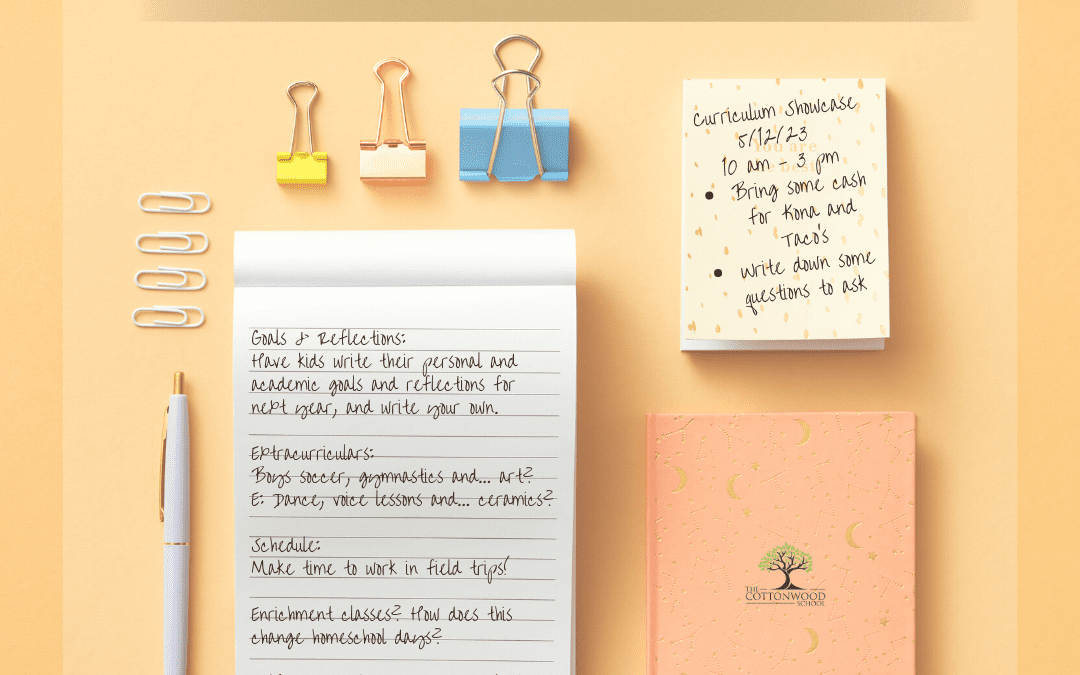 Curriculum Showcase
5/12/23
You are
10 am - 3 pm
• Bring some cash
for Kona and
Taco's
• write down some
questions to ask
Goals & Reflections:
Have kids write their personal and
academic goals and reflections for
next year, and write your own.
Extracurriculars:
Boys soccer, gymnastics and... art?
E: Dance, voice lessons and... ceramics?
Schedule:
Make time to work in field trips!
Enrichment classes? How does this
change homeschool days?
THE
COTTONWOOD
SCHOOL